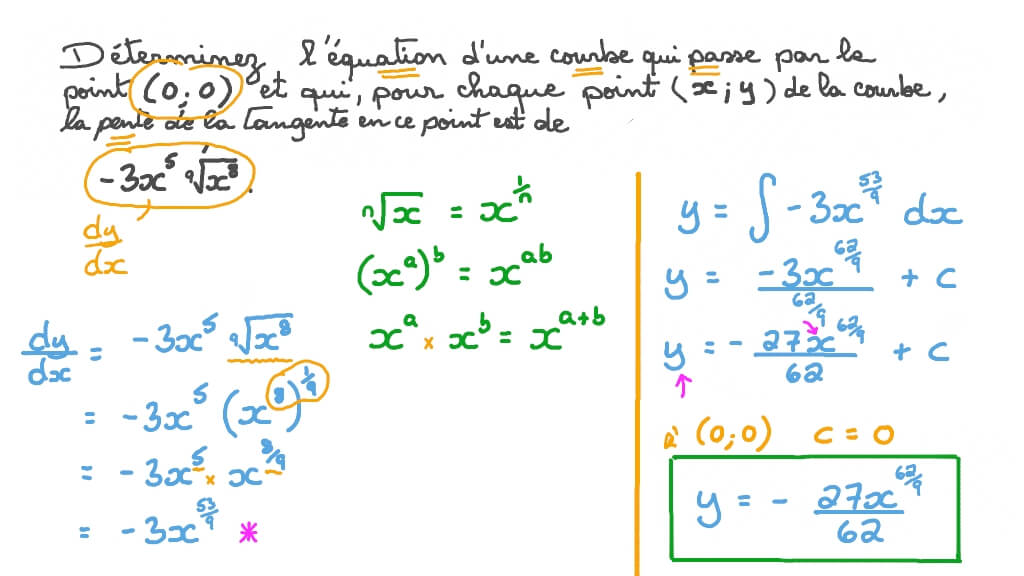 Déterminez l'équation d'une courbe qui passe par le
point (0;0) et qui, pour chaque point (x;y) de la courbe,
la pente de la tangente en ce point est de
-3x⁵ ⁹√x⁸.
dy/dx
dy/dx = -3x⁵ ⁹√x⁸
= -3x⁵ (x⁸)^(1/9)
= -3x⁵ × x^(8/9)
= -3x^(53/9) *
ⁿ√x = x^(1/n)
(x^a)^b = x^(ab)
x^a × x^b = x^(a+b)
y = ∫ -3x^(53/9) dx
y = -3x^(62/9) / (62/9) + c
y = - 27x^(62/9) / 62 + c
à (0;0) c = 0
y = - 27x^(62/9) / 62